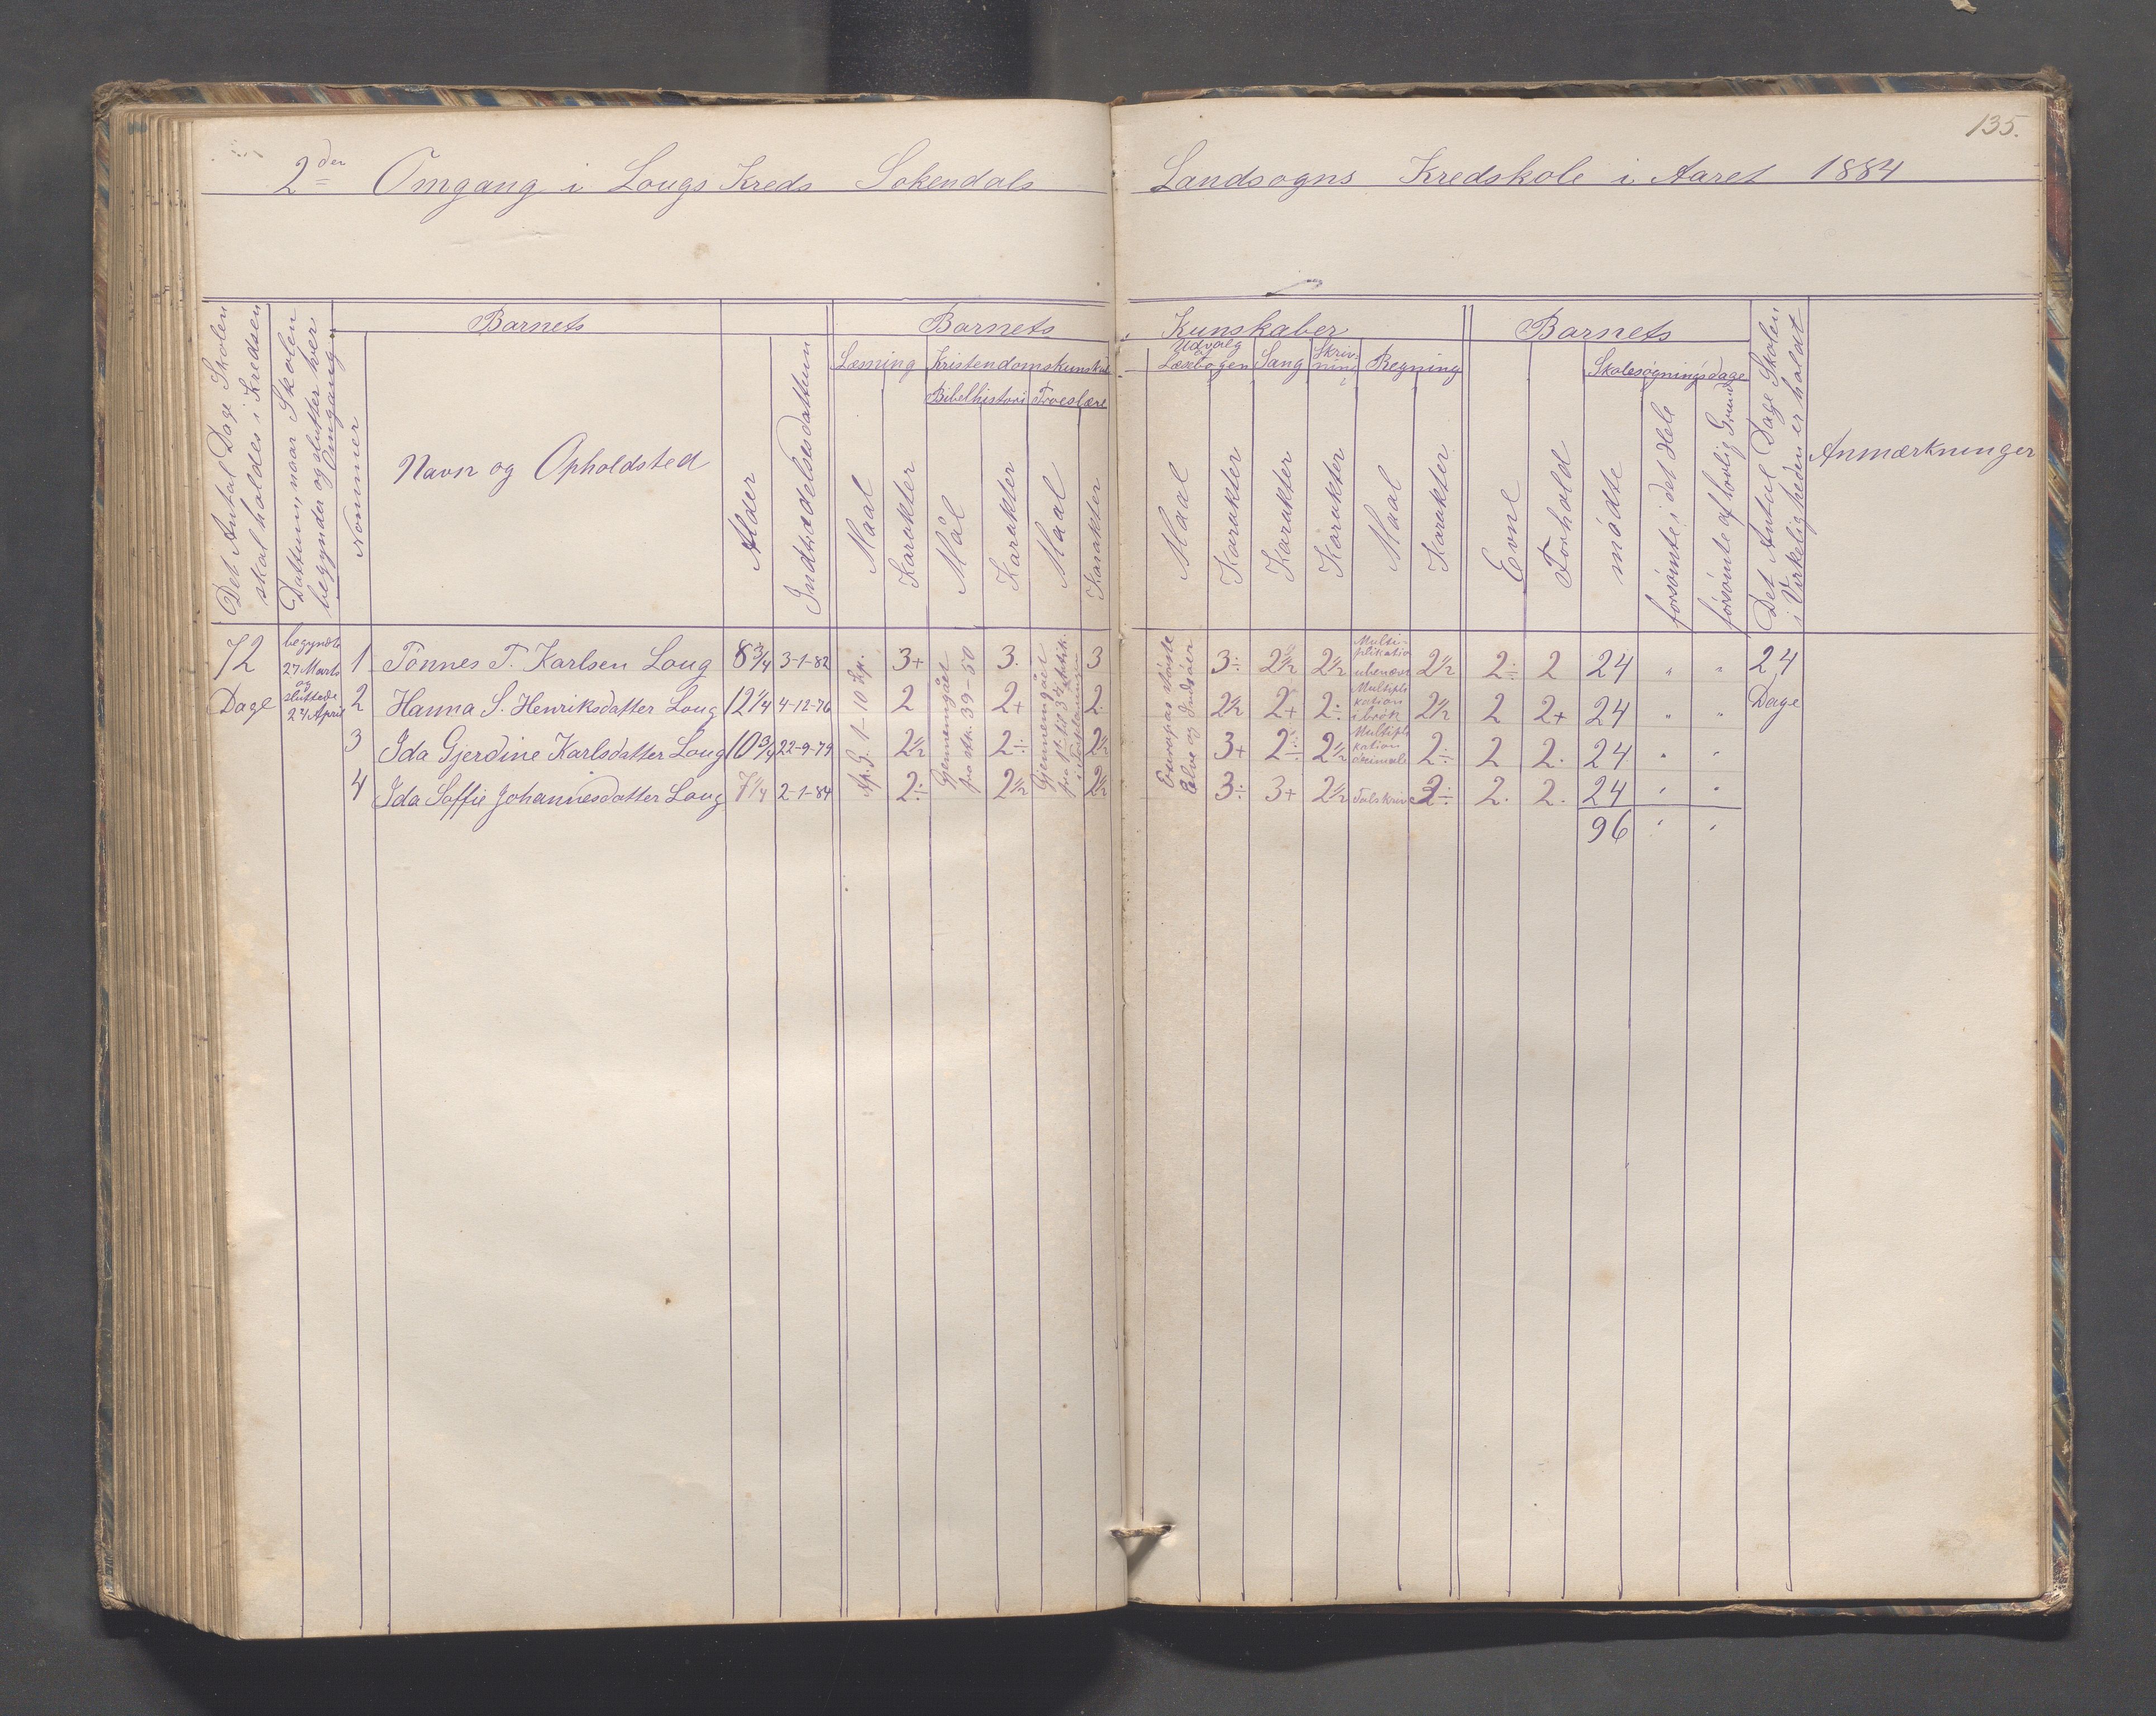 135.
2den Omgang i Laugs Kreds Sokendals Landsogns Kredskole i Aaret 1884
Det Antal Dage Skolen skal holdes i Kredsen
Dattum, naar Skolen begynder og slutter hver Omgang
Nommer
Barnets
Navn og Opholdsted
Alder
Indtrædelsesdattum
Barnets Kunskaber
Læsning
Maal
Karakter
Kristendomskunskab
Bibelhistori
Mål
Karakter
Troeslære
Maal
Karakter
Udvalg af Læsebogen
Maal
Karakter
Sang
Karakter
Skrivning
Karakter
Regning
Maal
Karakter
Barnets
Evne
Forhold
Skolesøgningsdage
mødte
forsømte i det Hele
forsømte af lovlig Grund
Det Antal Dage Skolen i Virkeligheden er holdt
Anmærkninger
72 Dage
begyndte 27 Marts og sluttede 24 April
1 Tønnes T. Karlsen Laug 8 3/4 3-1-82 3+ 3. 3 3÷ 2 1/2 2 1/2 Multiplikation ubenævn 2 1/2 2÷ 2 24 " " 24 Dage
2 Hanna S. Henriksdatter Laug 12 1/4 4-12-76 2 2+ 2. 2 1/2 2+ 2÷ Multiplikation i brøk 2 1/2 2 2+ 24 " "
3 Ida Gjerdine Karlsdatter Laug 10 3/4 22-9-79 2 1/2 2÷ 2 1/2 3+ 2÷ 2 1/2 Multiplikation decimale 2÷ 2 2. 24 " "
4 Ida Soffie Johannesdatter Laug 7 1/4 2-1-84 2÷ 2 1/2 2 1/2 3÷ 3+ 2 1/2 Talskriv 2÷ 2. 2. 24 " "
96 " "
Ap. G. 1-10 Kp.
Gjennemgået fra stk. 39-50
Gjennemgået fra 1ste til 3die Artik. i Forklaringen
Europas største Elve og Indsøer